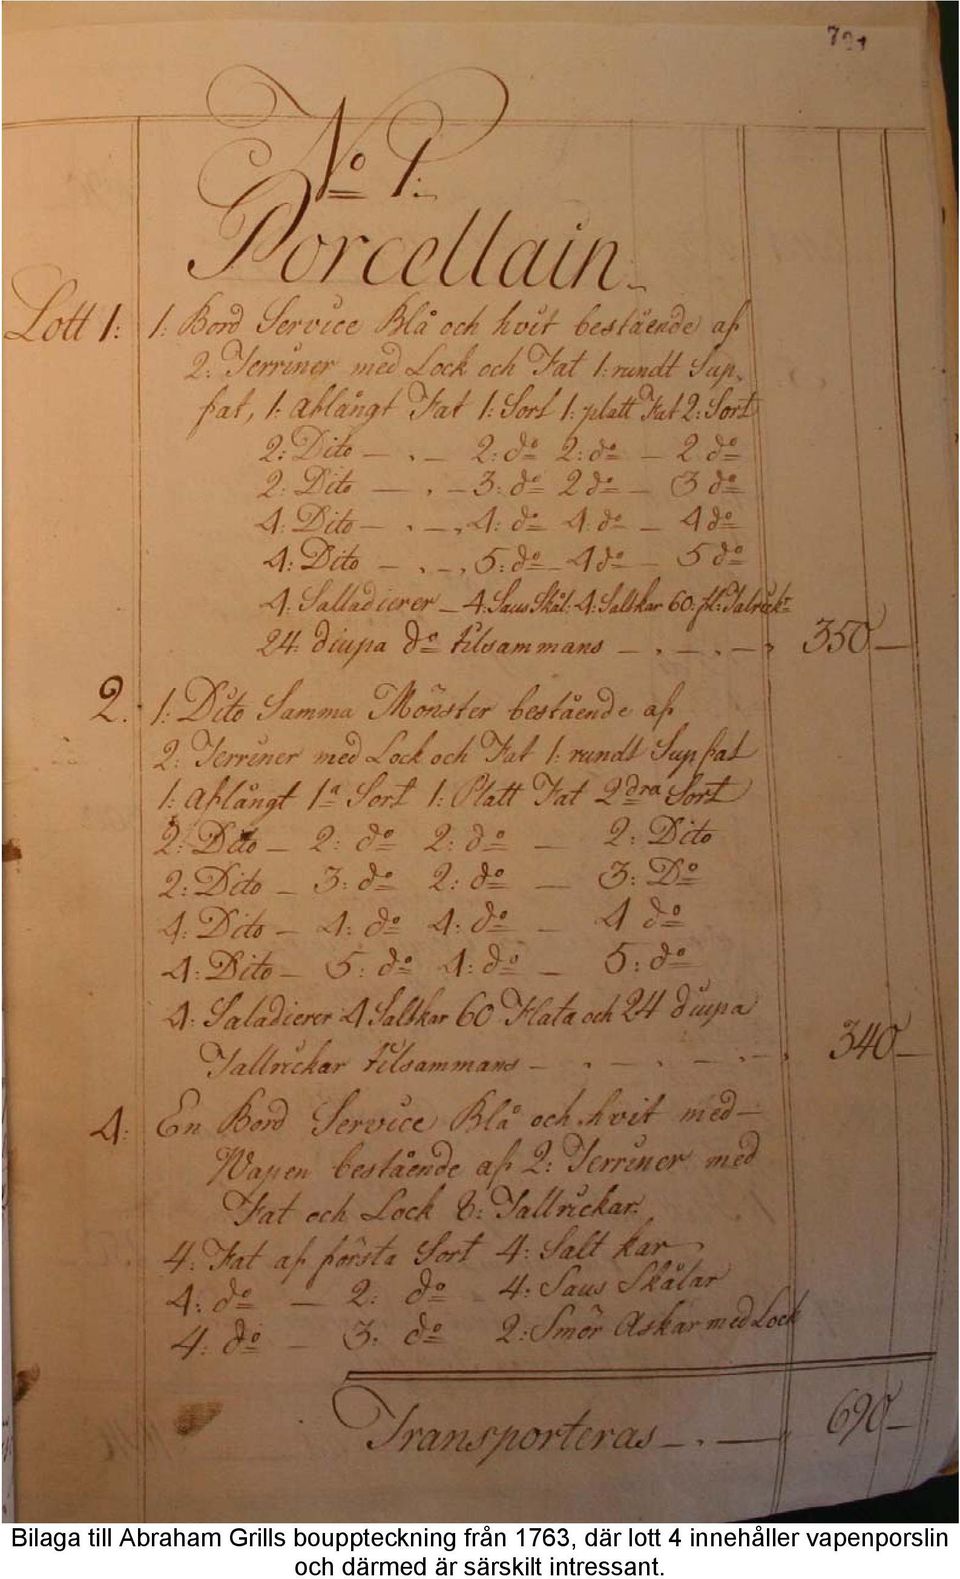 791
No 1:
Porcellain
Lott 1: 1: Bord Service Blå och hvit bestående af
2: Terriner med Lock och Fat 1: rundt Sup-
fat, 1: aflångt Fat 1: Sort 1: platt Fat 2: Sort
2: Dito — , — 2: do 2: do — 2 do
2: Dito — , — 3: do 2 do — 3 do
4: Dito — , — , 4: do 4: do — 4 do
4: Dito — , — , 5: do — 4 do — 5 do
4: Salladierer — 4: Saus Skål: 4: Saltkar 60: fl: Talrick:
24: diupa do tilsammans — , — , — , 350 —
2. 1: Dito Samma Mönster bestående af
2: Terriner med Lock och Fat 1: rundt Supfat
1: aflångt 1a Sort 1: Platt Fat 2dra Sort
2: Dito — 2: do 2: do — 2: Dito
2: Dito — 3: do 2: do — 3: Do
4: Dito — 4: do 4: do — 4 do
4: Dito — 5: do 4: do — 5: do
4: Saladierer 4 Saltkar 60 Flata och 24 diupa
Tallrickar tilsammans — , — , — , — , 340 —
4: En Bord Service Blå och hvit med —
Wapen bestående af 2: Terriner med
Fat och Lock 8: Tallrickar:
4: Fat af första Sort 4: Salt kar
4: do — 2: do 4: Saus Skålar
4: do — 3: do 2: Smör Askar med Lock
Transporteras — , — , 690 —
Bilaga till Abraham Grills bouppteckning från 1763, där lott 4 innehåller vapenporslin
och därmed är särskilt intressant.